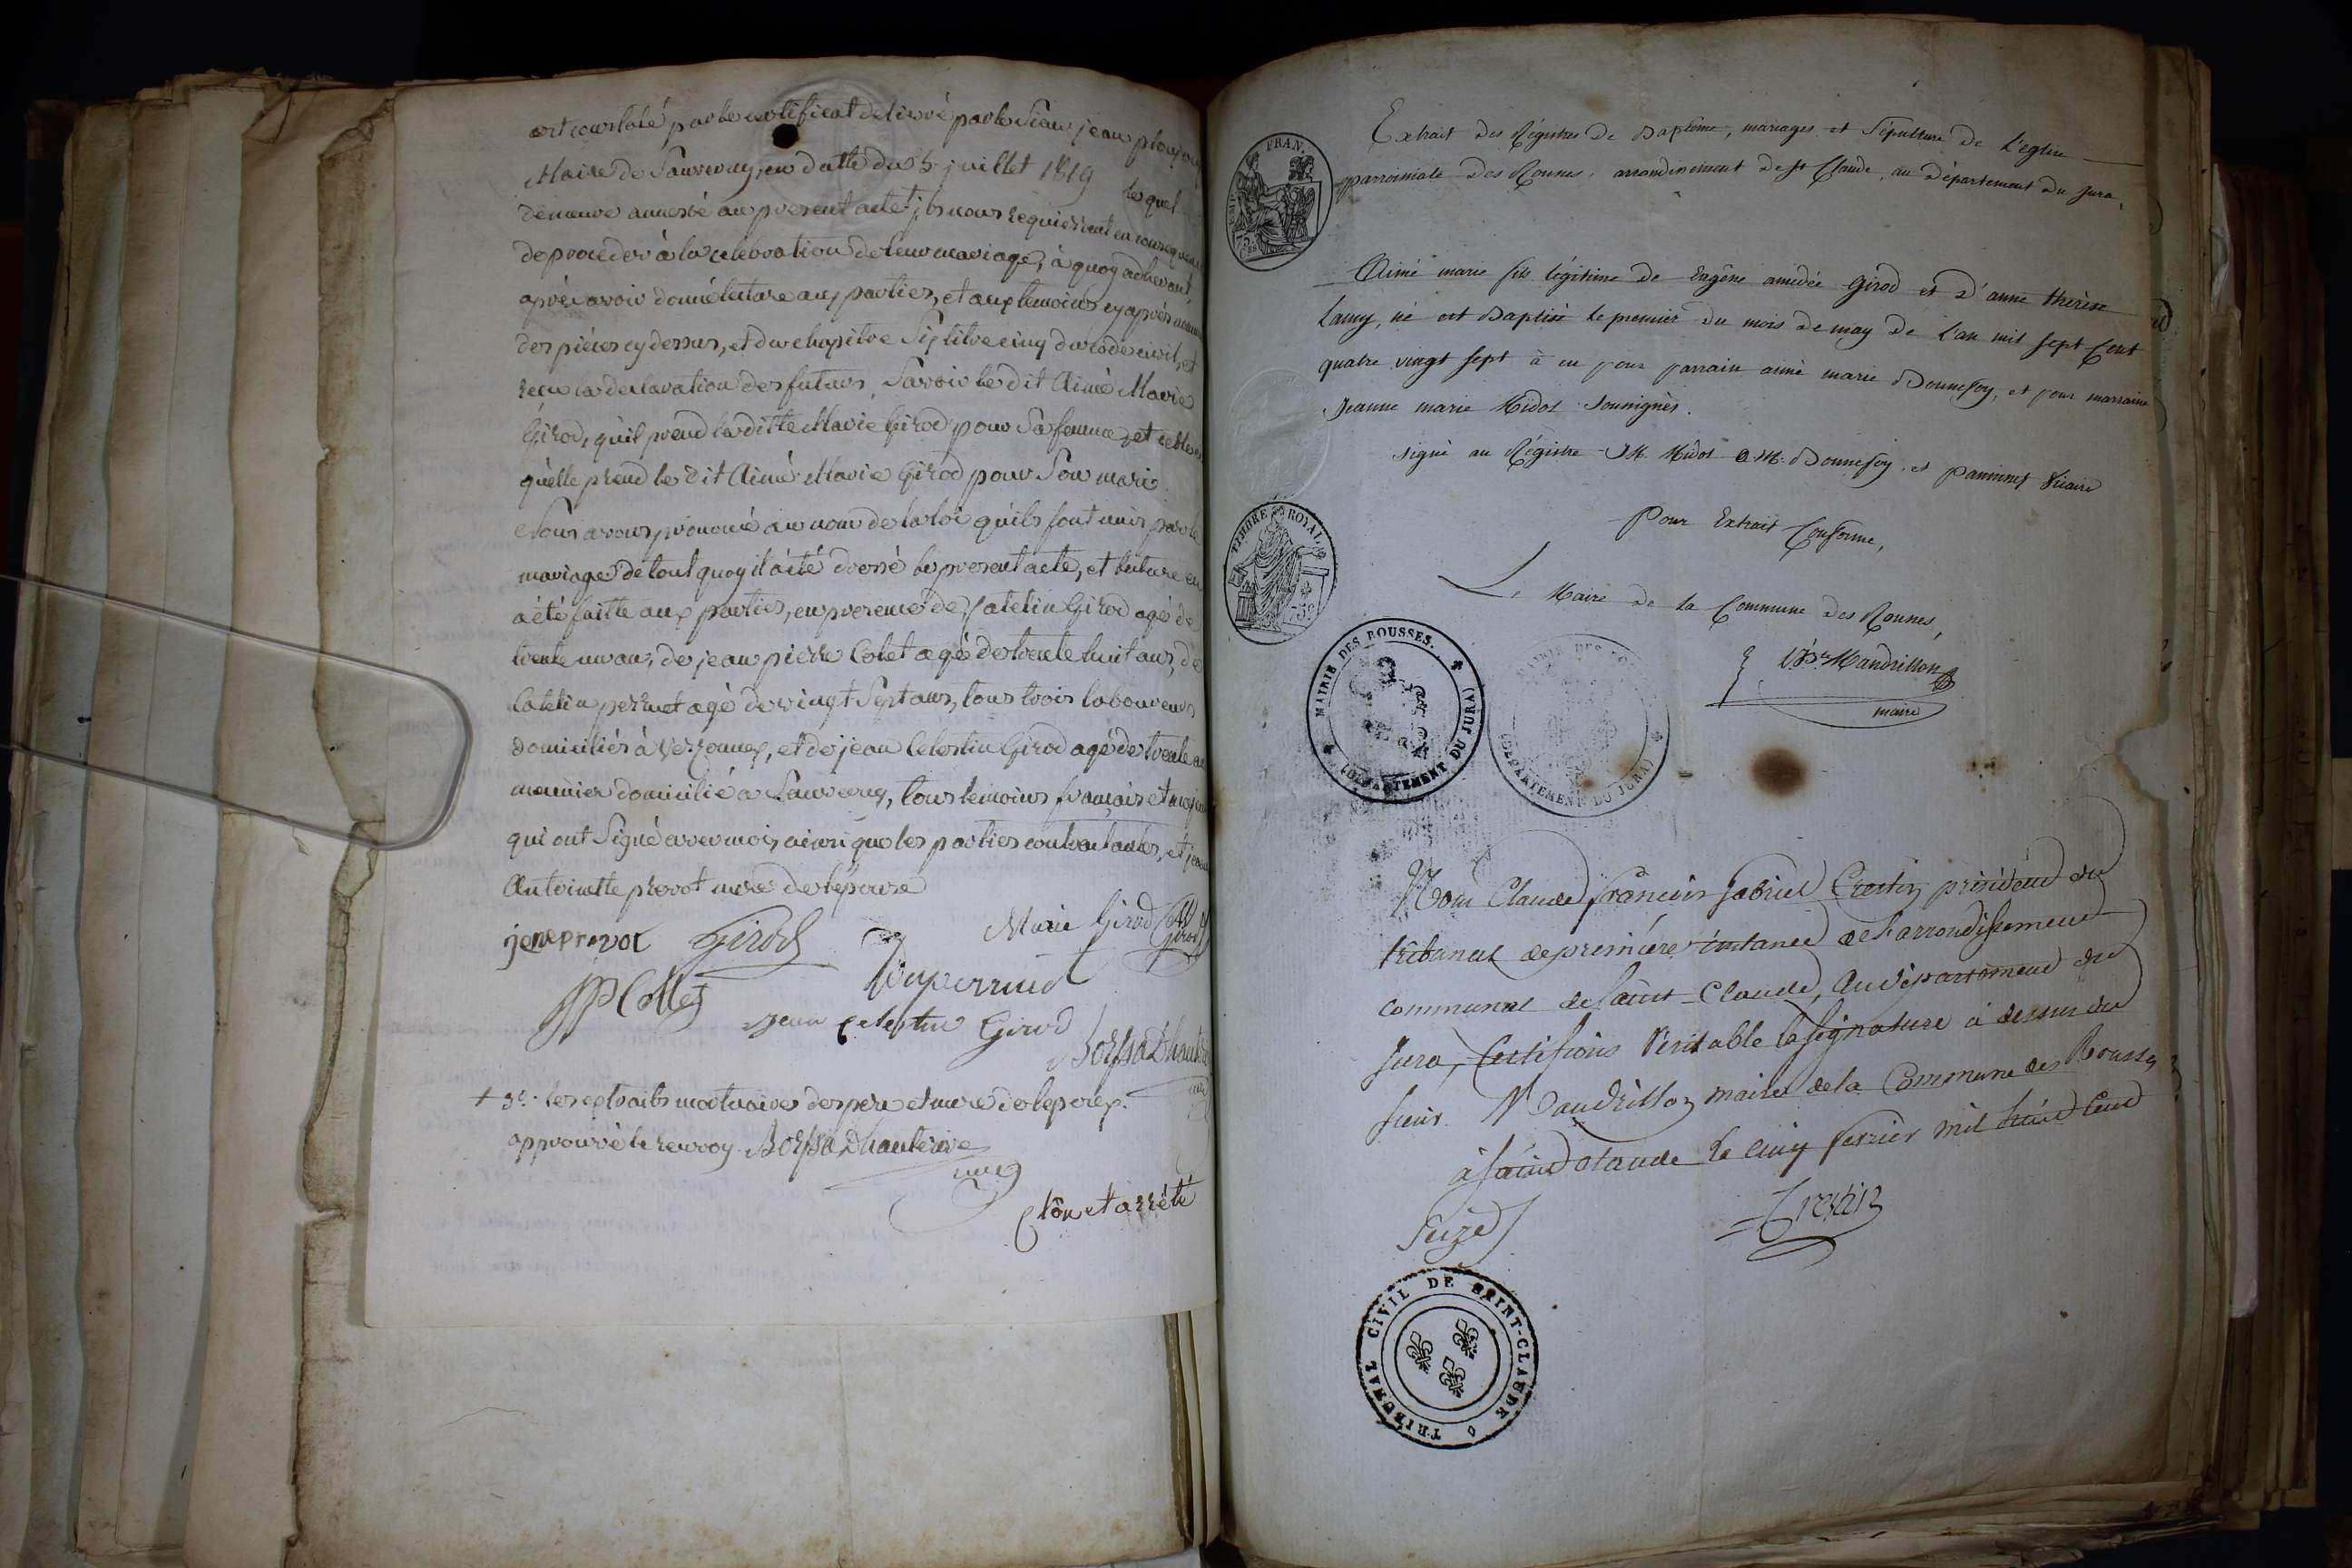 est constaté par le certificat delivré par le Sieur jean
Maire de Sauverny, en datte du 5 juillet 1819 lequel
demeure annexé au present acte; ils nous requierrent en
de proceder à la celebration de leur mariage, à quoy adherant,
après avoir donné lecture aux parties, et aux temoins cy après
des pièces cy dessus, et du chapitre Six titre cinq du code civil, et
recu la declaration des futurs, Savoir le dit Aimé Marie
Girod, qu'il prend la ditte Marie Girod pour Sa femme, et
qu'elle prend le dit Aimé Marie Girod pour Son mari.
Nous avons prononcé au nom de la loi qu'ils sont unis par le
mariage de tout quoy il à été dressé le present acte, et lecture en
a été faitte aux parties, en presence de Catelin Girod agé de
trente un an, de jean pierre Colet agé de trente huit ans, de
Catelin perruet agé de vingt Sept ans, tous trois laboureurs
domiciliés à Versonnex, et de jean Celestin Girod agé de trente
meunier domicilié a Sauverny, tous temoins français et
qui ont Signé avec moi, ainsi que les parties contractantes, et
Antoinette prevot mere de l'épouse
Girod Marie Girod Girod
JP Collet
jean celestin Girod
+ 3e. les extraits mortuaires des pere et mere de l'epoux.
approuvé le renvoy
Clôs et arrété
Extrait des Régistres de Baptême, mariages et Sépulture de L'eglise
parroissiale des Rousses, arrondissement de St Claude, au Département du Jura,
FRAN.
75 CES
Aimé marie fils légitime de Eugêne amidée Girod et d'anne thérèse
Lamy, né est Baptisé le premier du mois de may de l'an mil sept Cent
quatre vingt sept à eu pour parrain aimé marie Bonnefoy, et pour marraine
Jeanne marie Midol soussignès.
signé au Régistre J M. Midol A. M. Bonnefoy et vicaire
Pour Extrait Conforme,
TIMBRE ROYAL
75c
Le Maire de la Commune des Rousses,
Mandrillon
maire
MAIRIE DES ROUSSES.
(DÉPARTEMENT DU JURA)
(DÉPARTEMENT DU JURA)
Nous Claude françois gabriel Crestin président du
tribunal de première instance de l'arrondissement
communal de Saint-Claude, au département du
Jura, Certifions Véritable la Signature ci dessus du
sieur Mandrillon maire de la Commune des Rousses
à Saint Claude le cinq fevrier mil huit cent
Seize
Crestin
TRIBUNAL CIVIL DE SAINT-CLAUDE